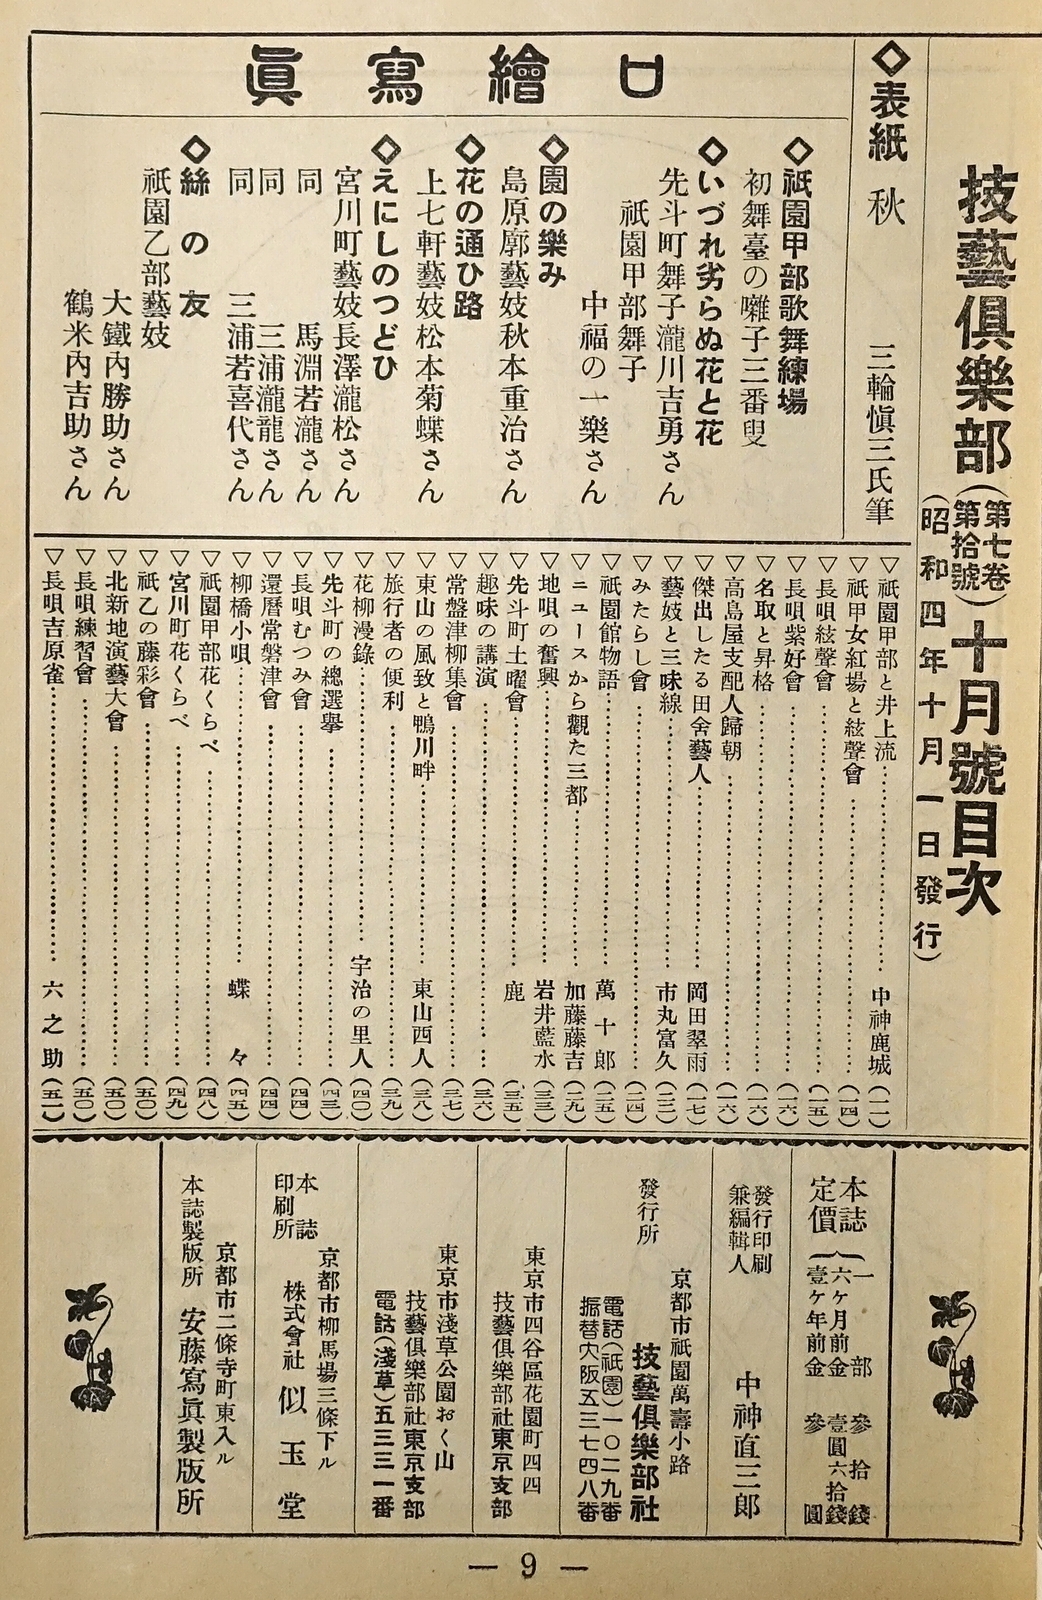 技藝俱樂部(第七卷第拾號)十月號目次
(昭和四年十月一日發行)
◇表紙 秋 三輪愼三氏筆
口繪寫眞
◇祇園甲部歌舞練場
初舞臺の囃子三番叟
◇いづれ劣らぬ花と花
先斗町舞子瀧川吉勇さん
祇園甲部舞子
中福の一樂さん
◇園の樂み
島原廓藝妓秋本重治さん
◇花の通ひ路
上七軒藝妓松本菊蝶さん
◇えにしのつどひ
宮川町藝妓長澤瀧松さん
同 馬淵若瀧さん
同 三浦瀧龍さん
同 三浦若喜代さん
◇絲の友
祇園乙部藝妓
大鐵內勝助さん
鶴米內吉助さん
▽祇園甲部と井上流……中神鹿城(一一)
▽祇甲女紅場と絃聲會……(一四)
▽長唄絃聲會……(一五)
▽長唄紫好會……(一六)
▽名取と昇格……(一六)
▽高島屋支配人歸朝……(一六)
▽傑出したる田舍藝人……岡田翠雨(一七)
▽藝妓と三味線……市丸富久(二二)
▽みたらし會……(二四)
▽祇園館物語……萬十郎(二五)
▽ニュースから觀た三都……加藤藤吉(二九)
▽地唄の奮興……岩井藍水(三三)
▽先斗町土曜會……鹿(三五)
▽趣味の講演……(三六)
▽常盤津柳集會……(三七)
▽東山の風致と鴨川畔……東山西人(三八)
▽旅行者の便利……(三九)
▽花柳漫錄……宇治の里人(四〇)
▽先斗町の總選擧……(四三)
▽長唄むつみ會……(四四)
▽還曆常磐津會……(四四)
▽柳橋小唄……蝶々(四五)
▽祇園甲部花くらべ……(四八)
▽宮川町花くらべ……(四九)
▽祇乙の藤彩會……(五〇)
▽北新地演藝大會……(五〇)
▽長唄練習會……(五〇)
▽長唄吉原雀……六之助(五一)
本誌定價
一部 參拾錢
六ヶ月前金 壹圓六拾錢
壹ヶ年前金 參圓
發行印刷兼編輯人 中神直三郎
京都市祇園萬壽小路
發行所 技藝俱樂部社
電話(祇園)一〇二九番
振替大阪五三七四八番
東京市四谷區花園町四四
技藝俱樂部社東京支部
東京市淺草公園おく山
技藝俱樂部社東京支部
電話(淺草)五三三一番
京都市柳馬場三條下ル
本誌印刷所 株式會社 似玉堂
京都市二條寺町東入ル
本誌製版所 安藤寫眞製版所
— 9 —